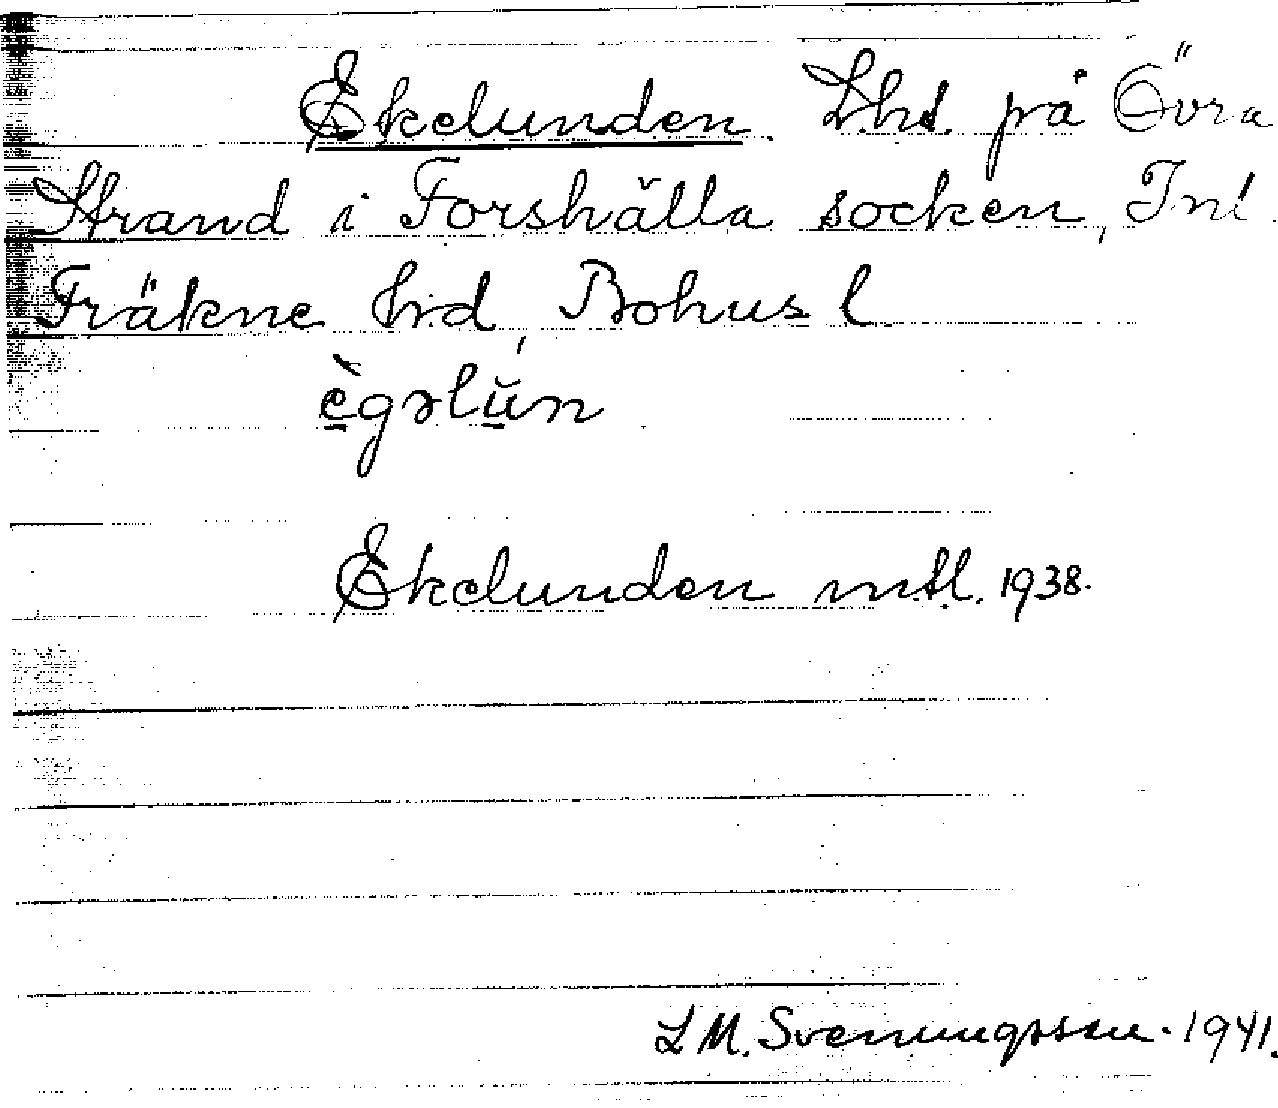 Ekelunden. Lht. på Övra
Strand i Forshälla socken, Inl.
Fräkne hd, Bohus l
ègəlún
Ekelunden mtl. 1938.
L M. Svenungsson. 1941.